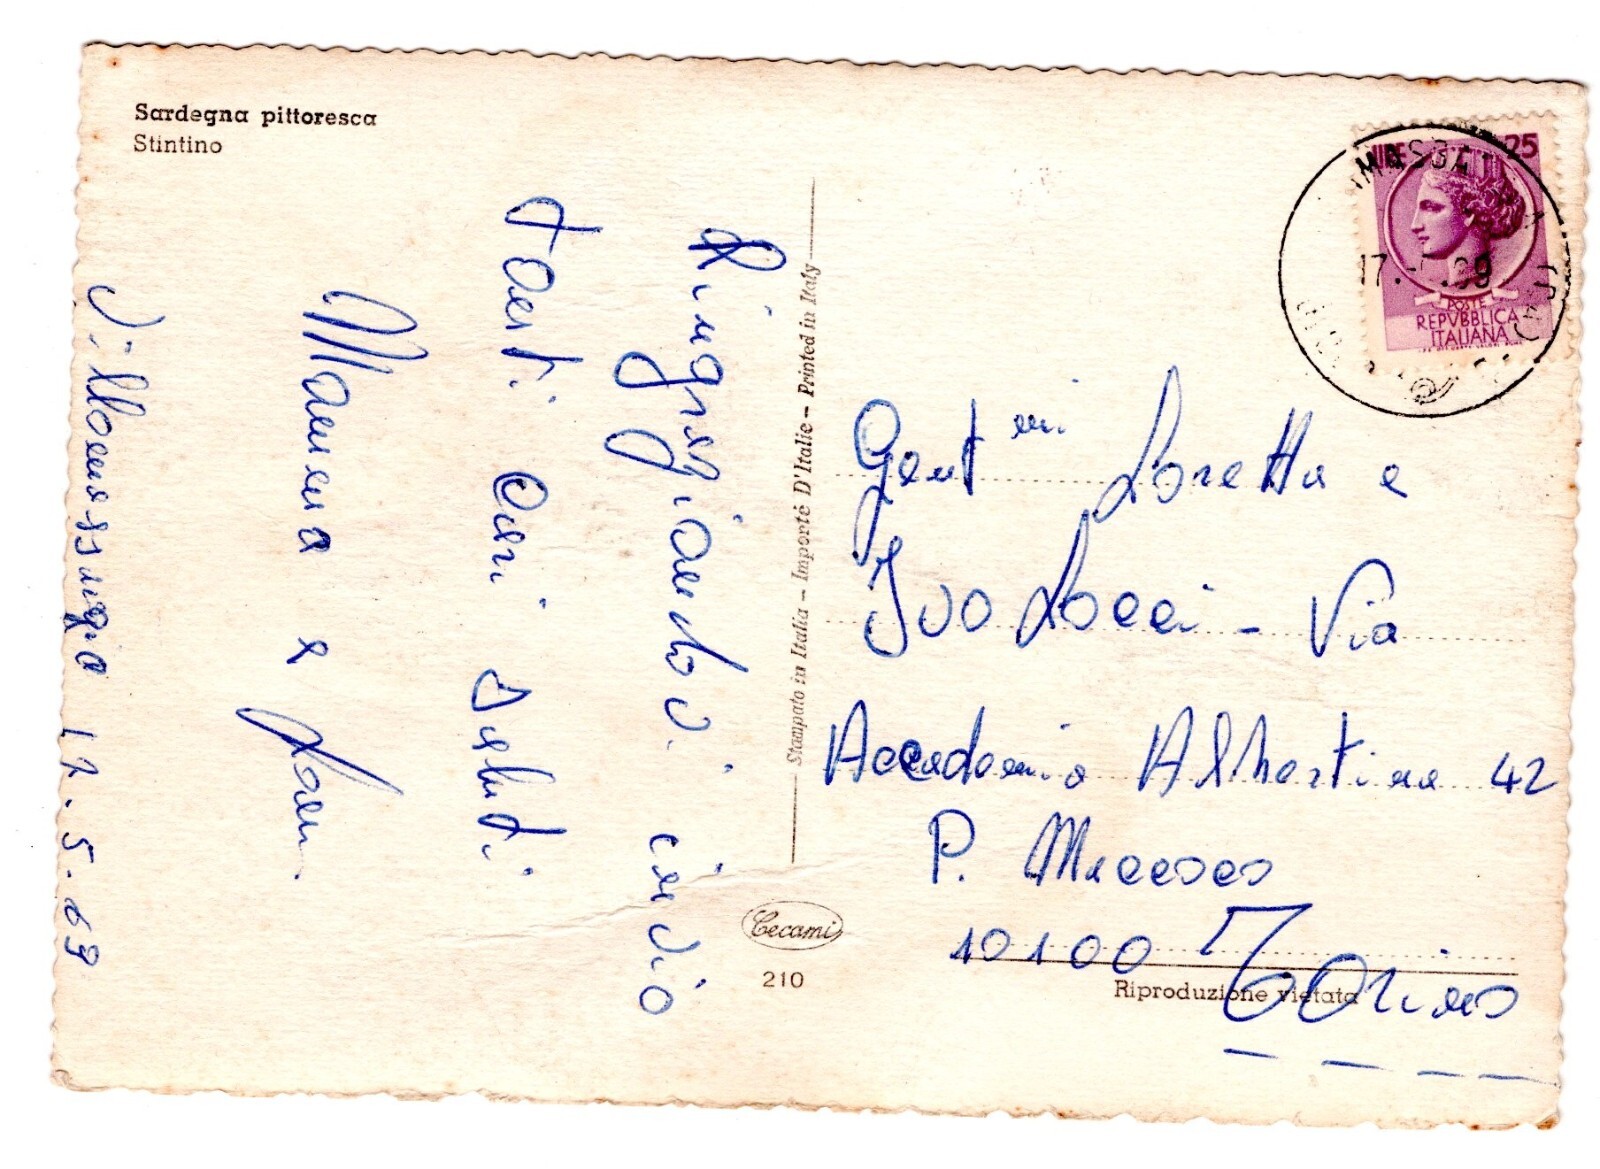 Sardegna pittoresca
Stintino
Ringraziandovi invio
tanti cari saluti
Mamma e
Villamassargia 17.5.69
Stampato in Italia - Importé D'Italie - Printed in Italy
Cecami
210
LIRE 25
POSTE
REPVBBLICA
ITALIANA
Gent mi Loretta e
Ivo Locci - Via
Accademia Albertina 42
P. Mecceso
10100 Torino
Riproduzione vietata